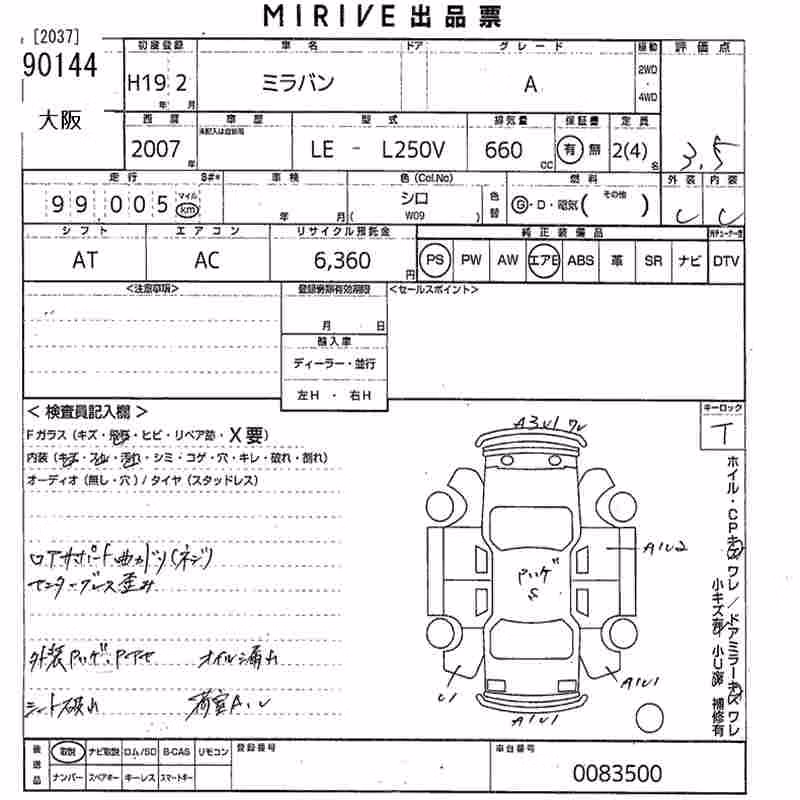 MIRIVE 出品票
[2037]
90144
大阪
初度登録 車名 ドア グレード 駆動 評価点
H19 2 ミラバン A 2WD ・ 4WD
年 月
西暦 車歴 型式 排気量 保証書 定員
未記入は自家用
2007 年 LE - L250V 660 CC 有 無 2(4) 名 3.5
走行 S#* 車検 色(Col.No) 燃料 外装 内装
99,005 マイル km 年 月 シロ ( W09 ) 色替 G・D・電気( その他 ) C C
シフト エアコン リサイクル預託金 純正装備品
AT AC 6,360 円 PS PW AW エアB ABS 革 SR ナビ DTV
<注意事項> 登録書類有効期限 <セールスポイント>
月 日
輸入車
ディーラー・並行
左H ・右H
<検査員記入欄> キーロック
Fガラス(キズ・飛石・ヒビ・リペア跡・X要) A3U1 ワレ T
内装(キズ・スレ・汚れ・シミ・コゲ・穴・キレ・破れ・割れ)
オーディオ(無し・穴)/タイヤ(スタッドレス)
ロアサポート曲 A1U2
歪み S
外装 オイル漏れ A1U1
シート破れ 荷室A、U U1
A1U1
ホイル・CP ワレ/ドアミラーキズ ワレ
小キズ 小U 補修有
後送品 取説 ナビ取説 ロム/SD B-CAS リモコン 登録番号 車台番号
ナンバー スペアキー キーレス スマートキー 0083500